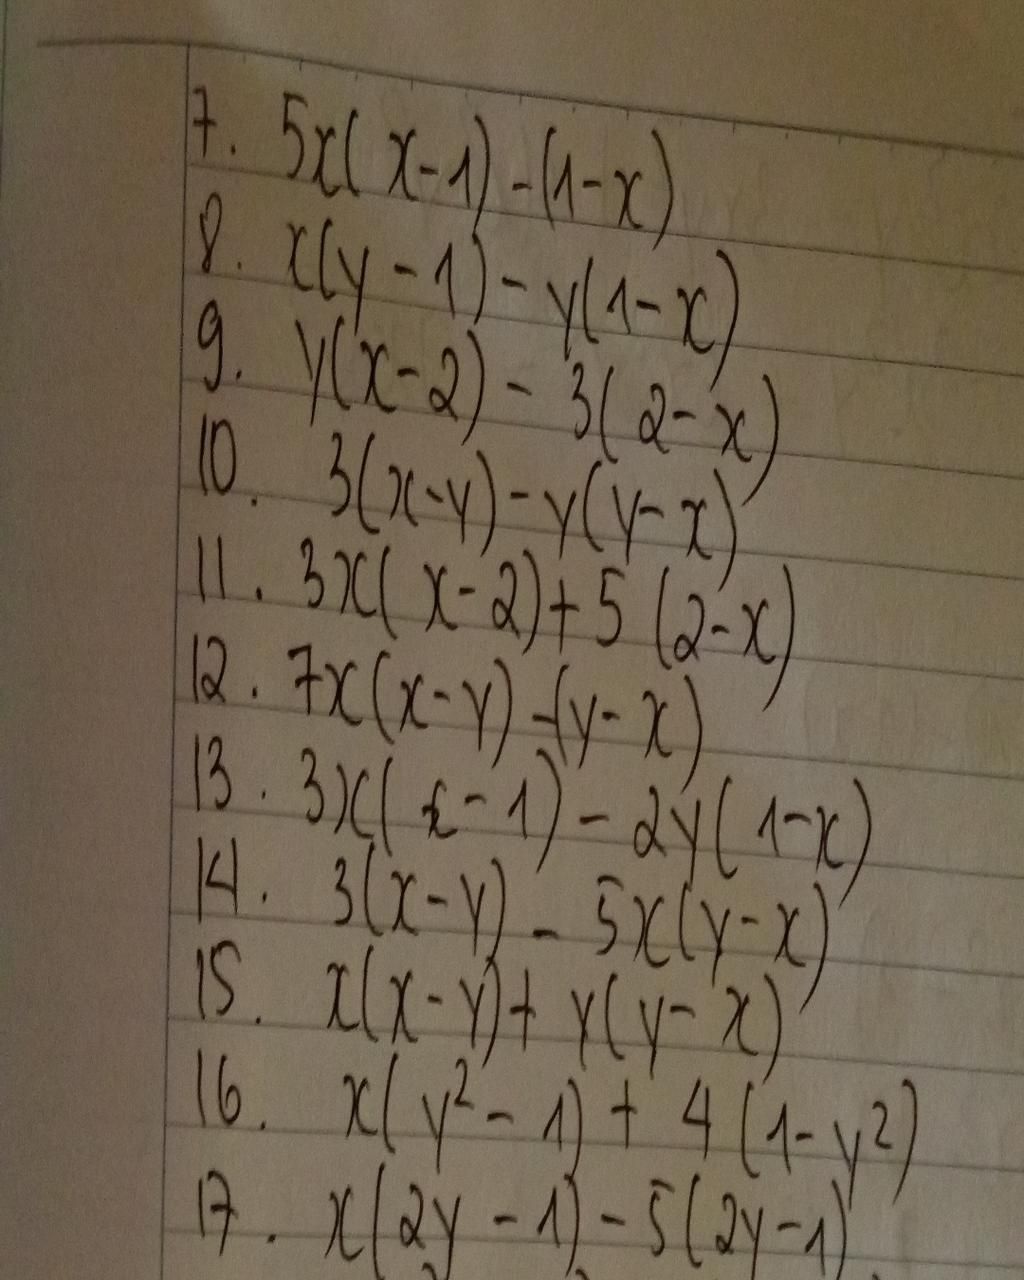 7. 5x(x-1)-(1-x)
8. x(y-1)-y(1-x)
9. y(x-2)-3(2-x)
10. 3(x-y)-y(y-x)
11. 3x(x-2)+5(2-x)
12. 7x(x-y)-(y-x)
13. 3x(x-1)-2y(1-x)
14. 3(x-y)-5x(y-x)
15. x(x-y)+y(y-x)
16. x(y²-1)+4(1-y²)
17. x(2y-1)-5(2y-1)